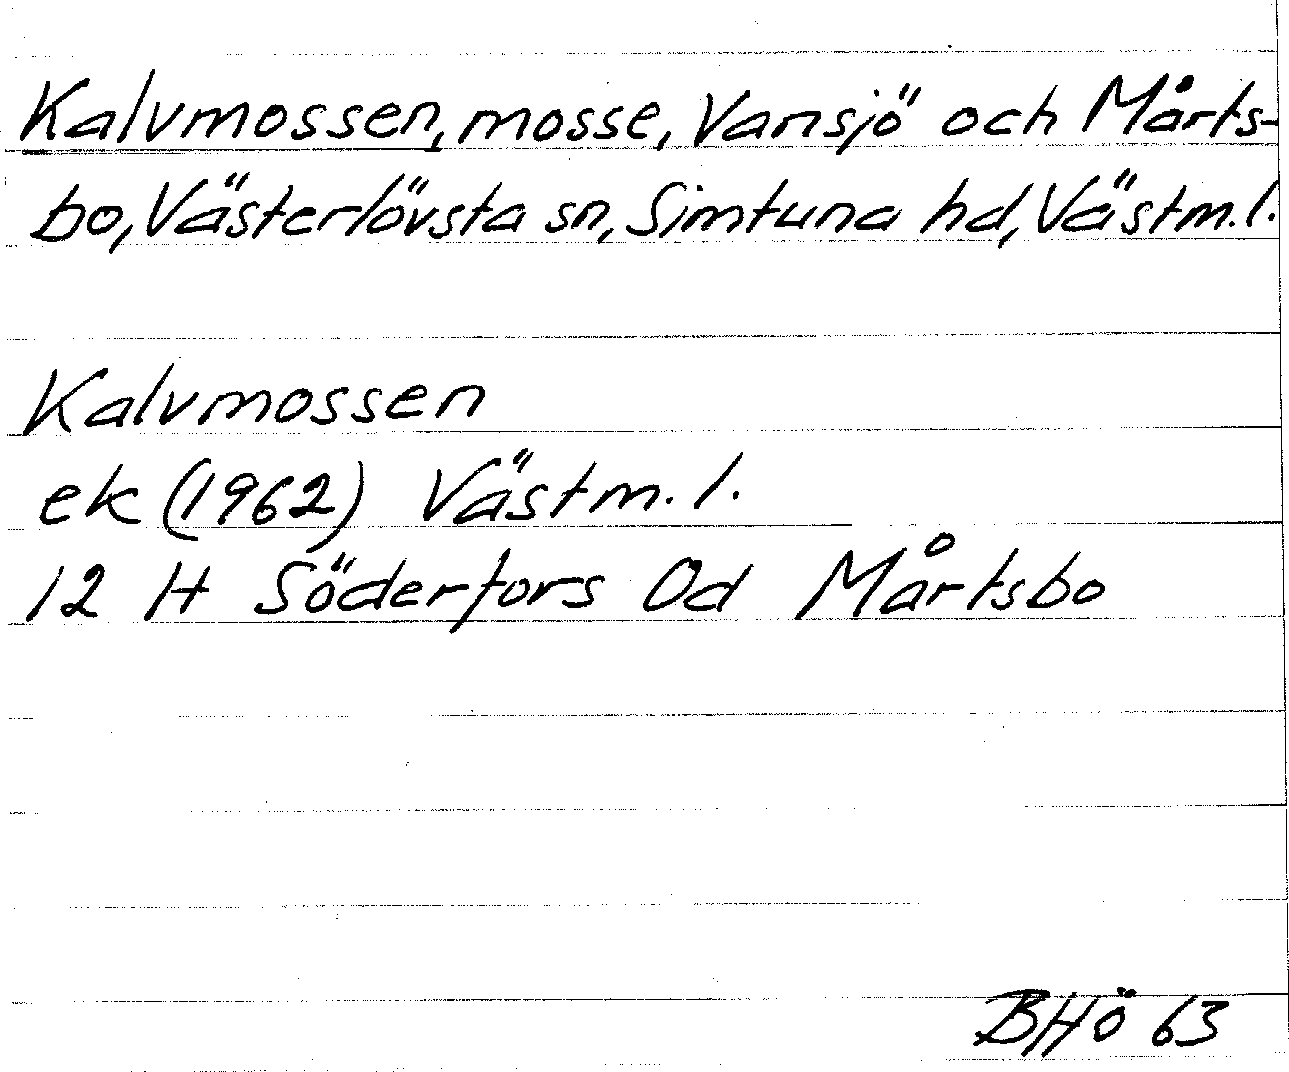 Kalvmossen, mosse, Vansjö och Mårts-
bo, Västerlövsta sn, Simtuna hd, Västm.l.
Kalvmossen
ek (1962) Västm.l.
12 H Söderfors 0d Mårtsbo
BHö 63